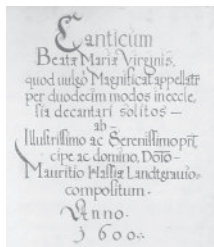 Canticum
Beatæ Mariæ Virginis,
quod vulgo Magnificat appellatr
per duodecim modos in eccle,
sia decantari solitos —
ab —
Illustrissimo ac Serenissimo prīt,
cipe ac domino, Doto —
Mauritio Hassiæ Landtgravio,
compositum.
Anno.
1600.